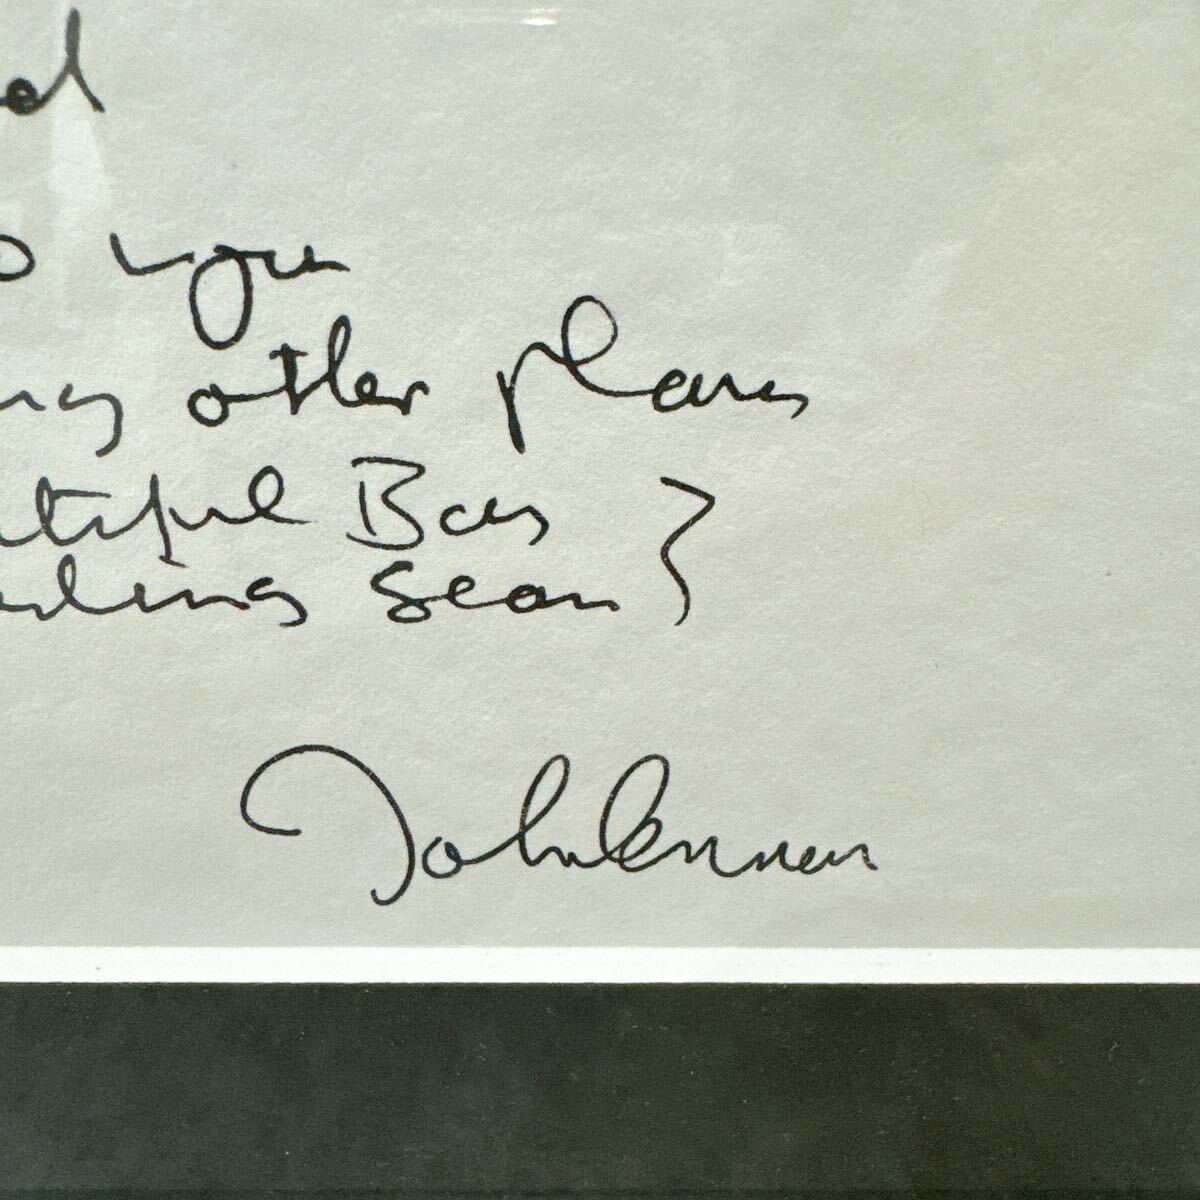 o you
ng other plans
utiful Boy
arling Sean }
John Lennon